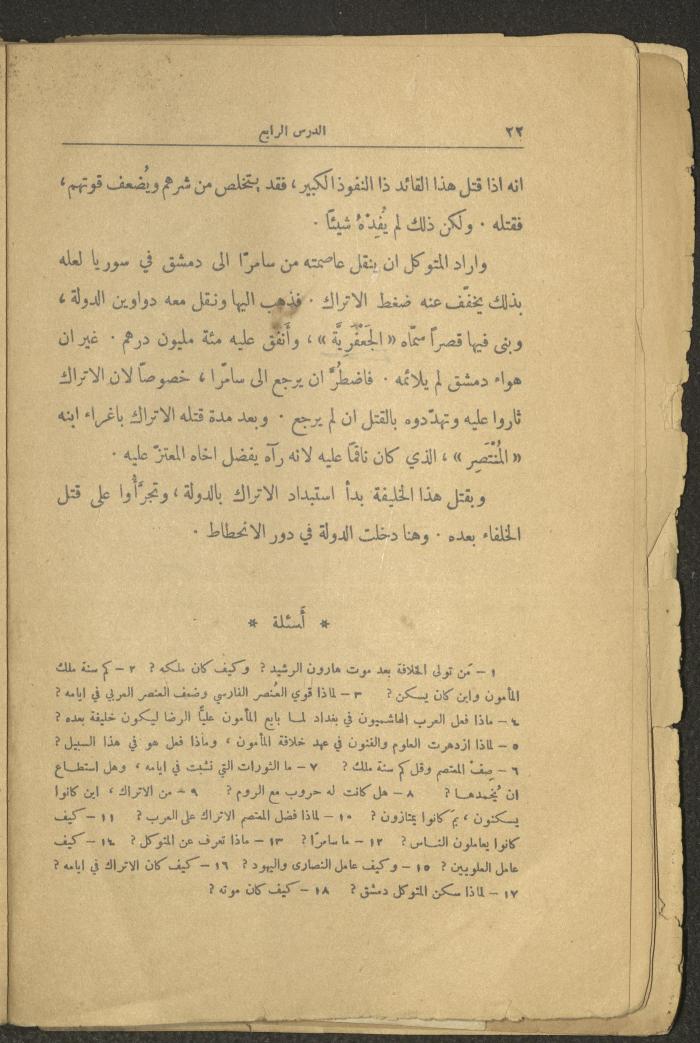 ٢٢
الدرس الرابع
انه اذا قتل هذا القائد ذا النفوذ الكبير ، فقد يتخلص من شرهم ويُضعف قوتهم ،
فقتله . ولكن ذلك لم يُفِدْهُ شيئاً .
واراد المتوكل ان ينقل عاصمته من سامرّا الى دمشق في سوريا لعله
بذلك يخفّف عنه ضغط الاتراك . فذهب اليها ونقل معه دواوين الدولة ،
وبنى فيها قصراً سمّاه « الجَعْفَرِيَّة » ، وأَنفق عليه مئة مليون درهم . غير ان
هواء دمشق لم يلائمه . فاضطُرَّ ان يرجع الى سامرّا ، خصوصاً لان الاتراك
ثاروا عليه وتهدّدوه بالقتل ان لم يرجع . وبعد مدة قتله الاتراك باغراء ابنه
« المُنْتَصِر » ، الذي كان ناقماً عليه لانه رآه يفضل اخاه المعتزّ عليه .
وبقتل هذا الخليفة بدأ استبداد الاتراك بالدولة ، وتجرَّأُوا على قتل
الخلفاء بعده . وهنا دخلت الدولة في دور الانحطاط .
* أَسئلة *
١ – مَن تولى الخلافة بعد موت هارون الرشيد ؟ وكيف كان ملكه ؟ ٢ – كم سنة ملك
المأمون واين كان يسكن ؟ ٣ – لماذا قوي العُنصر الفارسي وضعف العنصر العربي في ايامه ؟
٤ – ماذا فعل العرب الهاشميون في بغداد لما بايع المأمون عليًّا الرضا ليكون خليفة بعده ؟
٥ – لماذا ازدهرت العلوم والفنون في عهد خلافة المأمون ، وماذا فعل هو في هذا السبيل ؟
٦ – صِفْ المعتصم وقل كم سنة ملك ؟ ٧ – ما الثورات التي نشبت في ايامه ، وهل استطاع
ان يُخمدها ؟ ٨ – هل كانت له حروب مع الروم ؟ ٩ – من الاتراك ، اين كانوا
يسكنون ، بمَ كانوا يمتازون ؟ ١٠ – لماذا فضل المعتصم الاتراك على العرب ؟ ١١ – كيف
كانوا يعاملون الناس ؟ ١٢ – ما سامرّا ؟ ١٣ – ماذا تعرف عن المتوكل ؟ ١٤ – كيف
عامل العلويين ؟ ١٥ – وكيف عامل النصارى واليهود ؟ ١٦ – كيف كان الاتراك في ايامه ؟
١٧ – لماذا سكن المتوكل دمشق ؟ ١٨ – كيف كان موته ؟